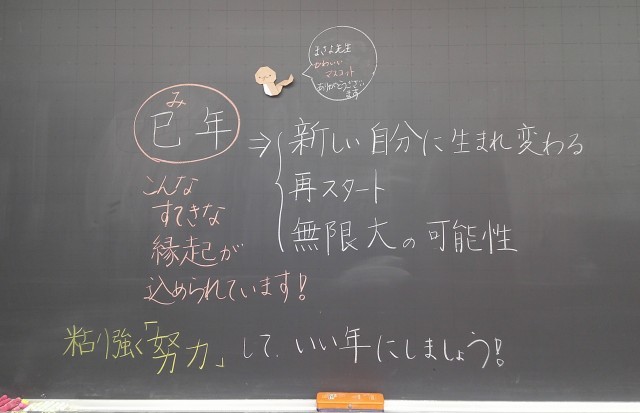 まさよ先生
かわいい
マスコット
ありがとうござい
ます
み
巳年
⇒
新しい自分に生まれ変わる
再スタート
無限大の可能性
こんな
すてきな
縁起が
込められています!
粘り強く「努力」して、いい年にしましょう!